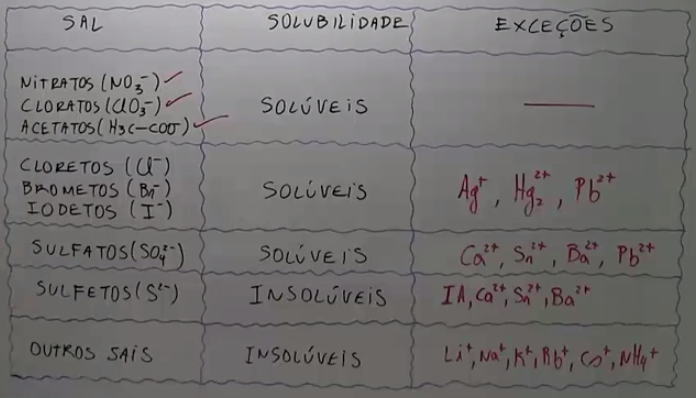 SAL SOLUBILIDADE EXCEÇÕES
NITRATOS (NO₃⁻)
CLORATOS (ClO₃⁻) SOLÚVEIS
ACETATOS (H₃C-COO⁻)
CLORETOS (Cl⁻)
BROMETOS (Br⁻) SOLÚVEIS Ag⁺, Hg₂²⁺, Pb²⁺
IODETOS (I⁻)
SULFATOS (SO₄²⁻) SOLÚVEIS Ca²⁺, Sn²⁺, Ba²⁺, Pb²⁺
SULFETOS (S²⁻) INSOLÚVEIS IA, Ca²⁺, Sn²⁺, Ba²⁺
OUTROS SAIS INSOLÚVEIS Li⁺, Na⁺, K⁺, Rb⁺, Cs⁺, NH₄⁺